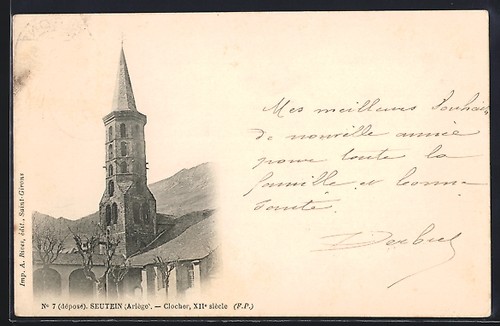 Mes meilleurs Souhaits
de nouvelle année
pour toute la
famille et bonne
Santé
Imp. A. Bleas, édit., Saint-Girons
N° 7 (déposé). SEUTEIN (Ariège). — Clocher, XIIe siècle (F.P.)